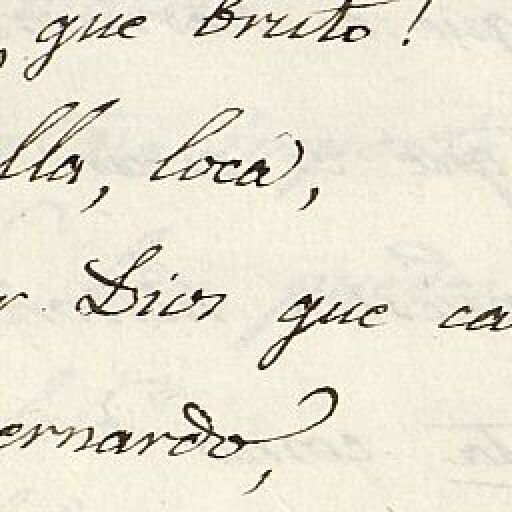 , que Bruto!
lla, loca,
r Dios que ca
ernardo,